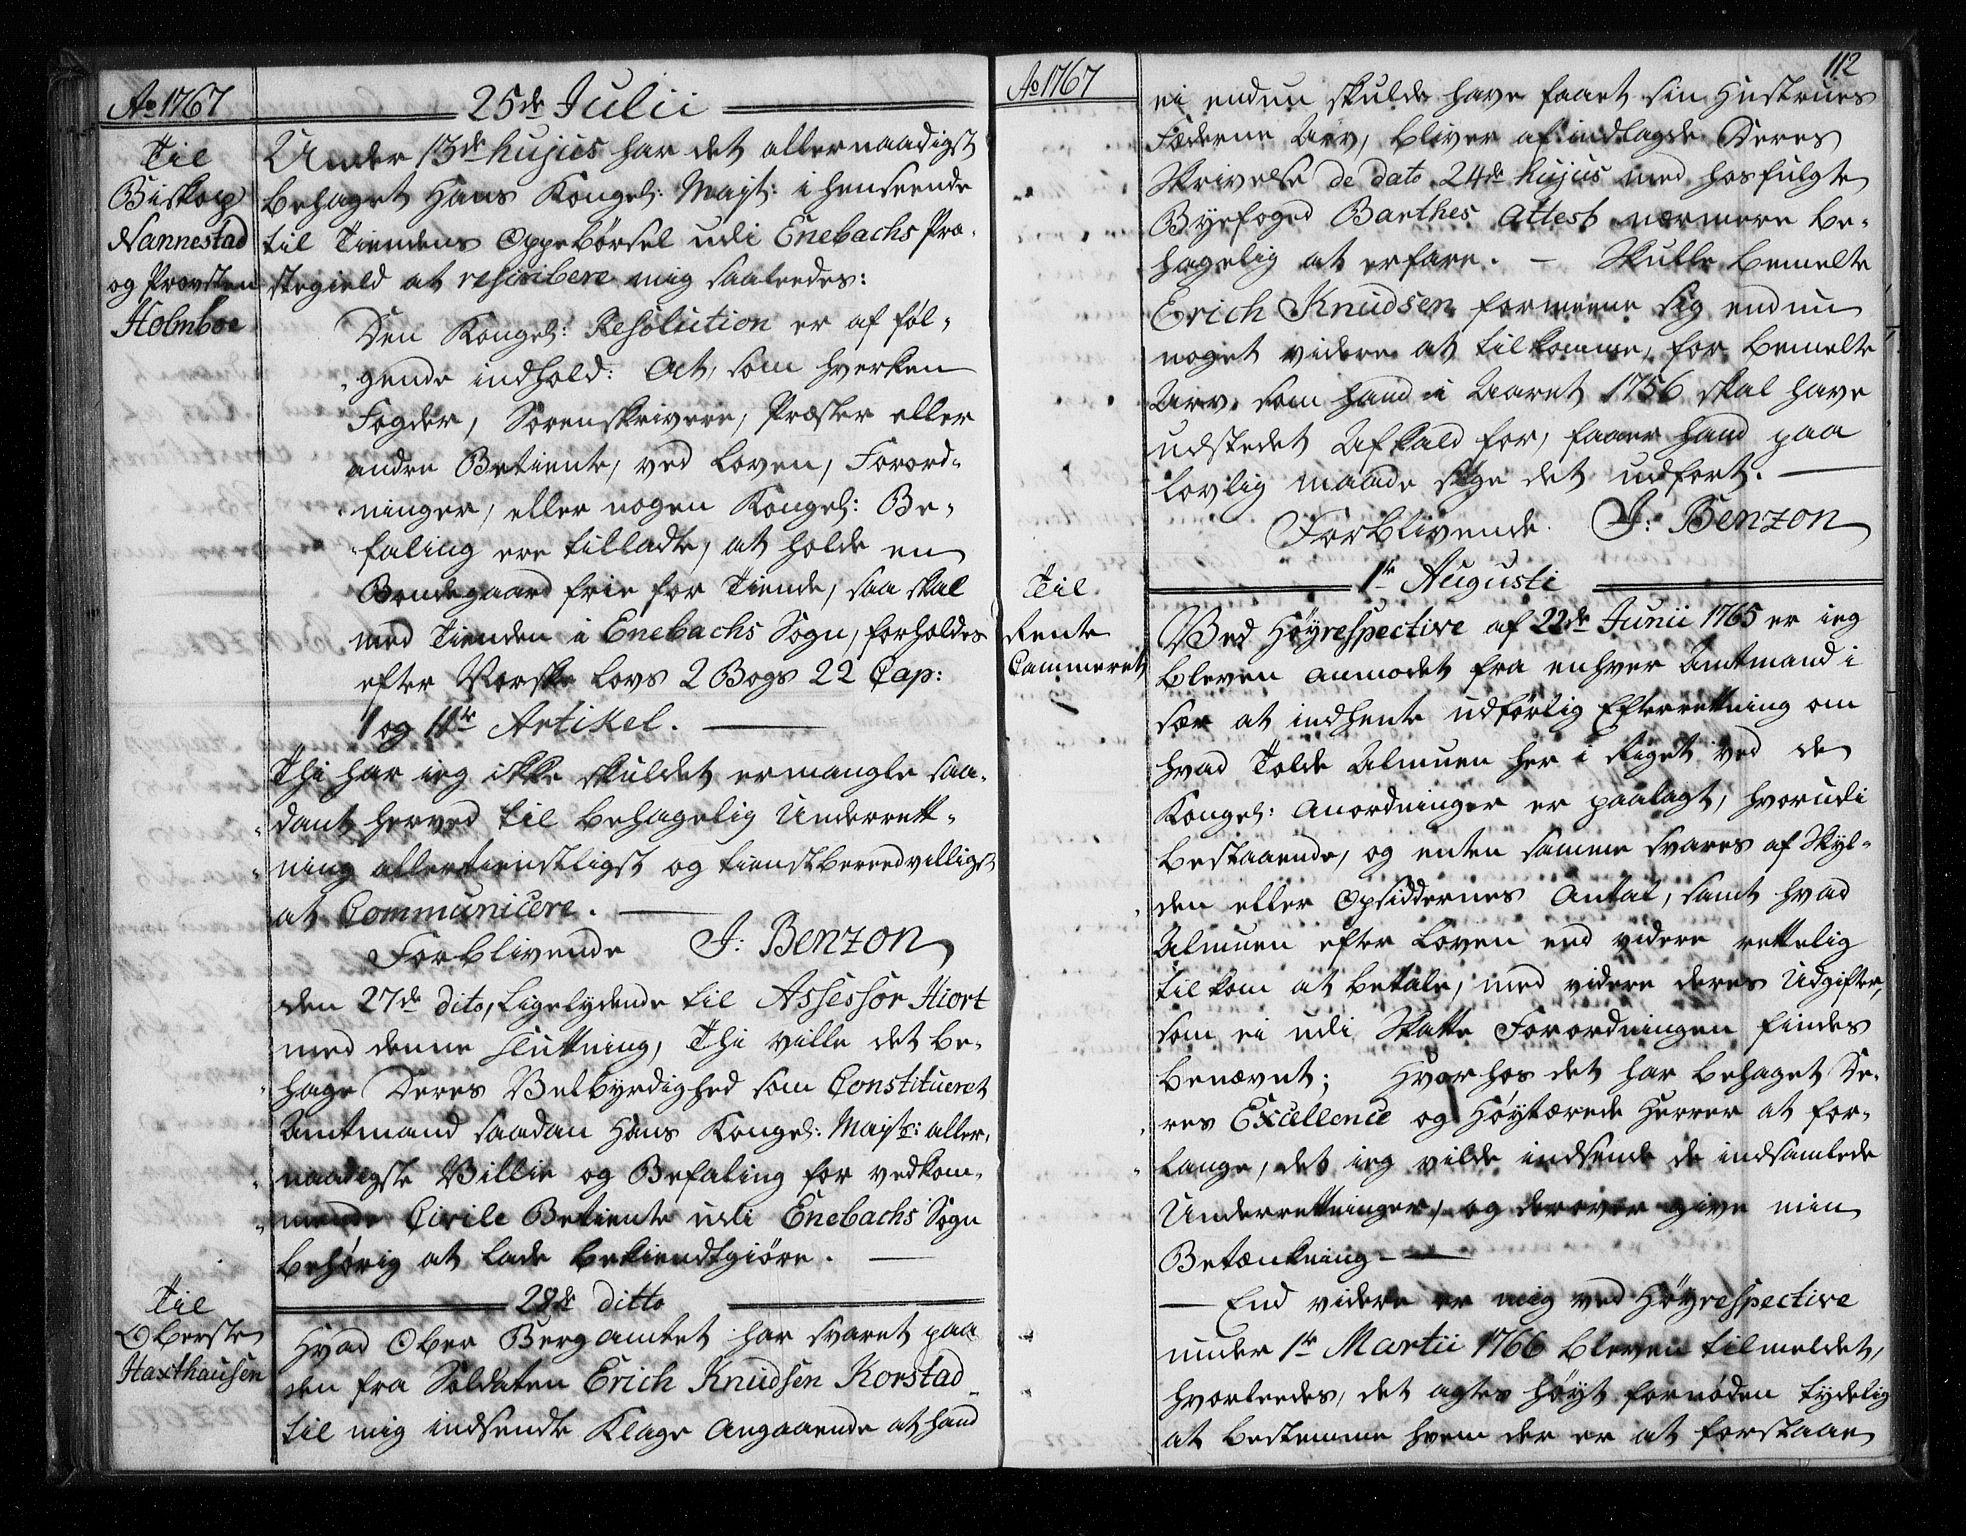 Ao 1767
25de Julii
Til
Biskop
Nannestad
og Provsten
Holmboe
Under 13de hujus har det allernaadigst
behaget Hans Kongel: Majt: i henseende
til Tiendens Oppebørsel udi Enebachs Præ-
stegield at rescribere mig saaledes:
Den Kongel: Resolution er af føl-
gende indhold: At, som hverken
Fogder, Sorenskrivere, Præster eller
andre Betiente, ved Loven, Forord-
ninger, eller nogen Kongel: Be-
faling ere tilladte, at holde en
Bondegaard frie for Tiende, saa skal
med Tienden i Enebachs Sogn, forholdes
efter Norske Lovs 2 Bogs 22 Cap:
1 og 11te Artikel.
Thi har ieg ikke skuldet ermangle saa-
dant herved til behagelig Underrett-
ning allertienstligst og tienstbereedvilligst
at Communicere.
Forblivende J: Benzon
den 27de dito, ligelydende til Assessor Hiort
med denne Sluttning, Thi ville det be-
hage Deres Velbyrdighed som Constitueret
Amtmand saadan Hans Kongel: Majts: aller-
naadigste Villie og Befaling for vedkom-
mende Civile Betiente udi Enebachs Sogn
behørig at lade bekiendtgiøre.
28de ditto
Til
Oberste
Haxthausen
Hvad Ober Bergamtet har svaret paa
den fra Soldaten Erich Knudsen Korstad
til mig indsendte Klage angaaende at hand
Ao 1767
112
ei endnu skulde have faaet sin Hustrues
Fæderne Arv, bliver af indlagde Deres
Skrivelse de dato 24de hujus med hosfulgte
Byefoged Barthes Attest nærmere be-
hagelig at erfare. — Skulle bemelte
Erich Knudsen formeene sig endnu
noget videre at tilkomme, for bemelte
Arv, som hand i Aaret 1756 skal have
udstedet Afkald for, faaer hand paa
lovlig maade søge det udført.
Forblivende J: Benzon
1te Augusti
Til
Rente
Cammeret
Ved Høyrespective af 22de Junii 1765 er ieg
bleven anmodet fra enhver Amtmand i
sær at indhente udførlig Efterrettning om
hvad Tolde Almuen her i Riget ved de
Kongel: Anordninger er paalagt, hvorudi
bestaaende, og enten samme svares af Skyl-
den eller Opsiddernes Antal, samt hvad
Almuen efter Loven end videre rettelig
tilkom at betale, med videre deres Udgifter,
som ei udi Skatte Forordningen findes
benævnt; Hvorhos det har behaget De-
res Excellence og Høytærede Herrer at for-
lange, det ieg vilde indsende de indsamlede
Underrettninger, og derover give min
Betænkning —
— End videre er mig ved Høyrespective
under 1te Martii 1766 bleven tilmeldet,
hvorleedes, det agtes høyt fornøden tydelig
at bestemme hvem der er at forstaae